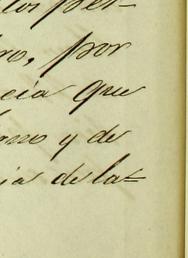 los per-
ro, por
cia que
rno y de
ia de la-